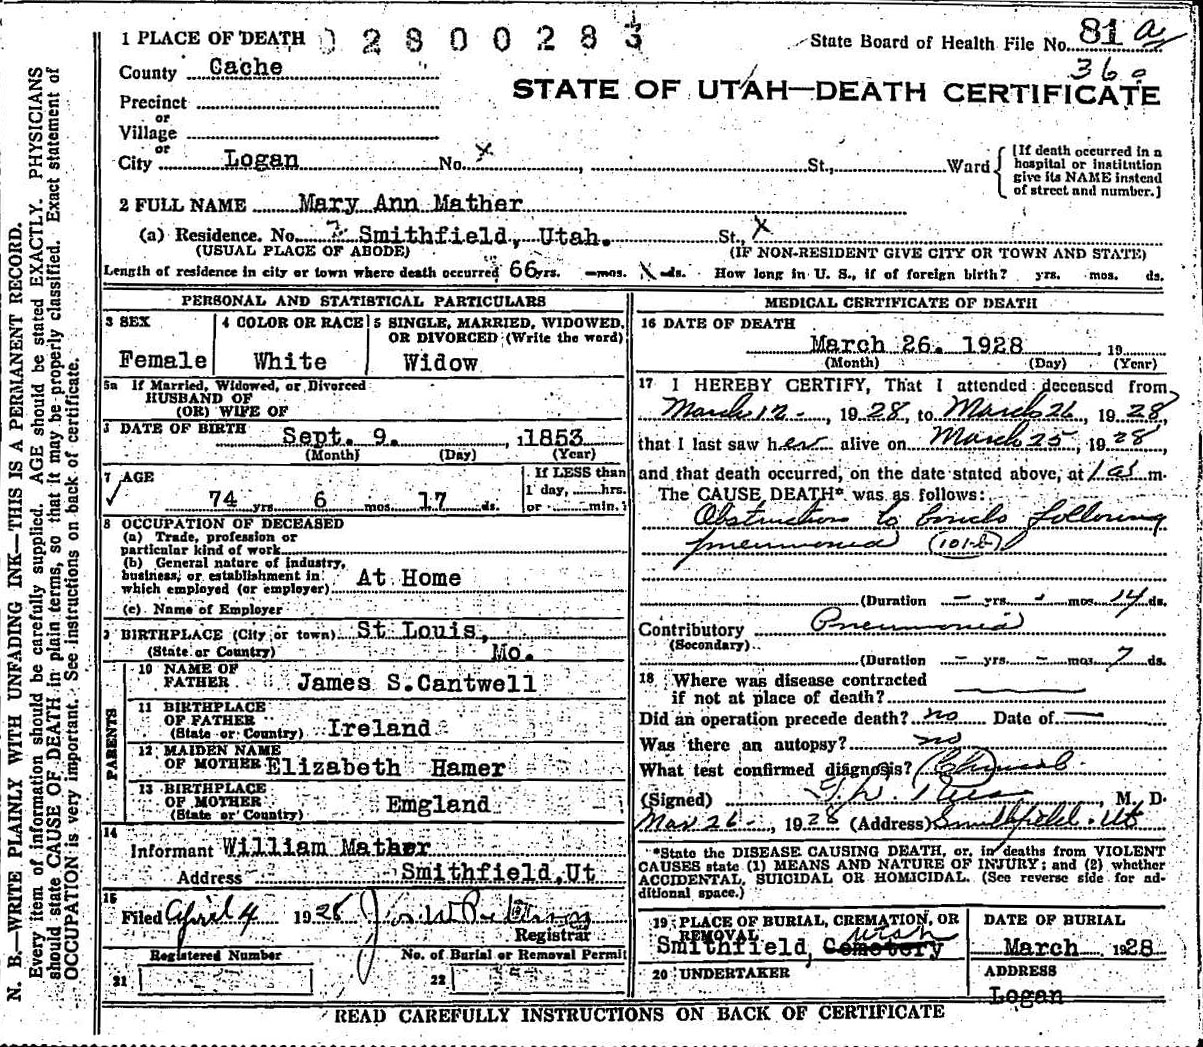 1 PLACE OF DEATH 02800283
State Board of Health File No. 81 a
36
County Cache
STATE OF UTAH—DEATH CERTIFICATE
Precinct
or
Village
or
City Logan No. x , St., Ward
[If death occurred in a
hospital or institution
give its NAME instead
of street and number.]
2 FULL NAME Mary Ann Mather
(a) Residence. No. Smithfield, Utah. St., X
(USUAL PLACE OF ABODE) (IF NON-RESIDENT GIVE CITY OR TOWN AND STATE)
Length of residence in city or town where death occurred 66 yrs. — mos. ds. How long in U. S., if of foreign birth? yrs. mos. ds.
PERSONAL AND STATISTICAL PARTICULARS
3 SEX
Female
4 COLOR OR RACE
White
5 SINGLE, MARRIED, WIDOWED,
OR DIVORCED (Write the word)
Widow
5a If Married, Widowed, or Divorced
HUSBAND OF
(OR) WIFE OF
DATE OF BIRTH Sept. 9. , 1853
(Month) (Day) (Year)
7 AGE
74 yrs 6 mos. 17 ds.
If LESS than
1 day, hrs.
or min.
8 OCCUPATION OF DECEASED
(a) Trade, profession or
particular kind of work
(b) General nature of industry,
business, or establishment in
which employed (or employer) At Home
(c) Name of Employer
9 BIRTHPLACE (City or town) St Louis,
(State or Country) Mo.
PARENTS
10 NAME OF
FATHER James S. Cantwell
11 BIRTHPLACE
OF FATHER
(State or Country) Ireland
12 MAIDEN NAME
OF MOTHER Elizabeth Hamer
13 BIRTHPLACE
OF MOTHER
(State or Country) Emgland
14
Informant William Mather
Address Smithfield, Ut
15
Filed April 4 1928
Registrar
Registered Number No. of Burial or Removal Permit
21 22
MEDICAL CERTIFICATE OF DEATH
16 DATE OF DEATH
March 26. 1928 19
(Month) (Day) (Year)
17 I HEREBY CERTIFY, That I attended deceased from
March 12 , 1928, to March 26, 1928
that I last saw her alive on March 25, 1928
and that death occurred, on the date stated above, at 1 a m.
The CAUSE DEATH* was as follows:
Obstruction to bowels following
pneumonia
(Duration — yrs. - mos. 14 ds.
Contributory Pneumonia
(Secondary)
(Duration — yrs. — mos. 7 ds.
18 Where was disease contracted
if not at place of death?
Did an operation precede death? no Date of —
Was there an autopsy? no
What test confirmed diagnosis? Clinical
(Signed) , M. D.
Mar 26 , 1928 (Address) Smithfield. Ut
*State the DISEASE CAUSING DEATH, or, in deaths from VIOLENT
CAUSES state (1) MEANS AND NATURE OF INJURY; and (2) whether
ACCIDENTAL, SUICIDAL OR HOMICIDAL. (See reverse side for ad-
ditional space.)
19 PLACE OF BURIAL, CREMATION, OR
REMOVAL Utah
Smithfield, Cemetery
DATE OF BURIAL
March 1928
20 UNDERTAKER
ADDRESS
Logan
READ CAREFULLY INSTRUCTIONS ON BACK OF CERTIFICATE
N. B.—WRITE PLAINLY WITH UNFADING INK—THIS IS A PERMANENT RECORD.
Every item of information should be carefully supplied. AGE should be stated EXACTLY. PHYSICIANS
should state CAUSE OF DEATH in plain terms, so that it may be properly classified. Exact statement of
OCCUPATION is very important. See instructions on back of certificate.